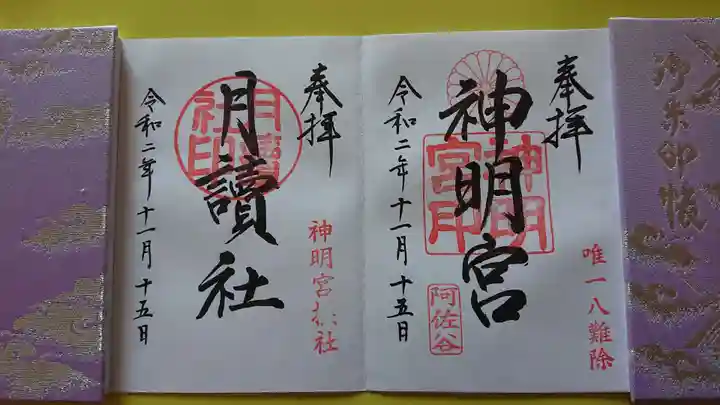 奉拝
唯一八難除
神明宮
神明宮印
阿佐谷
令和二年十一月十五日
奉拝
神明宮末社
月讀社
月讀社印
令和二年十一月十五日
御朱印帳